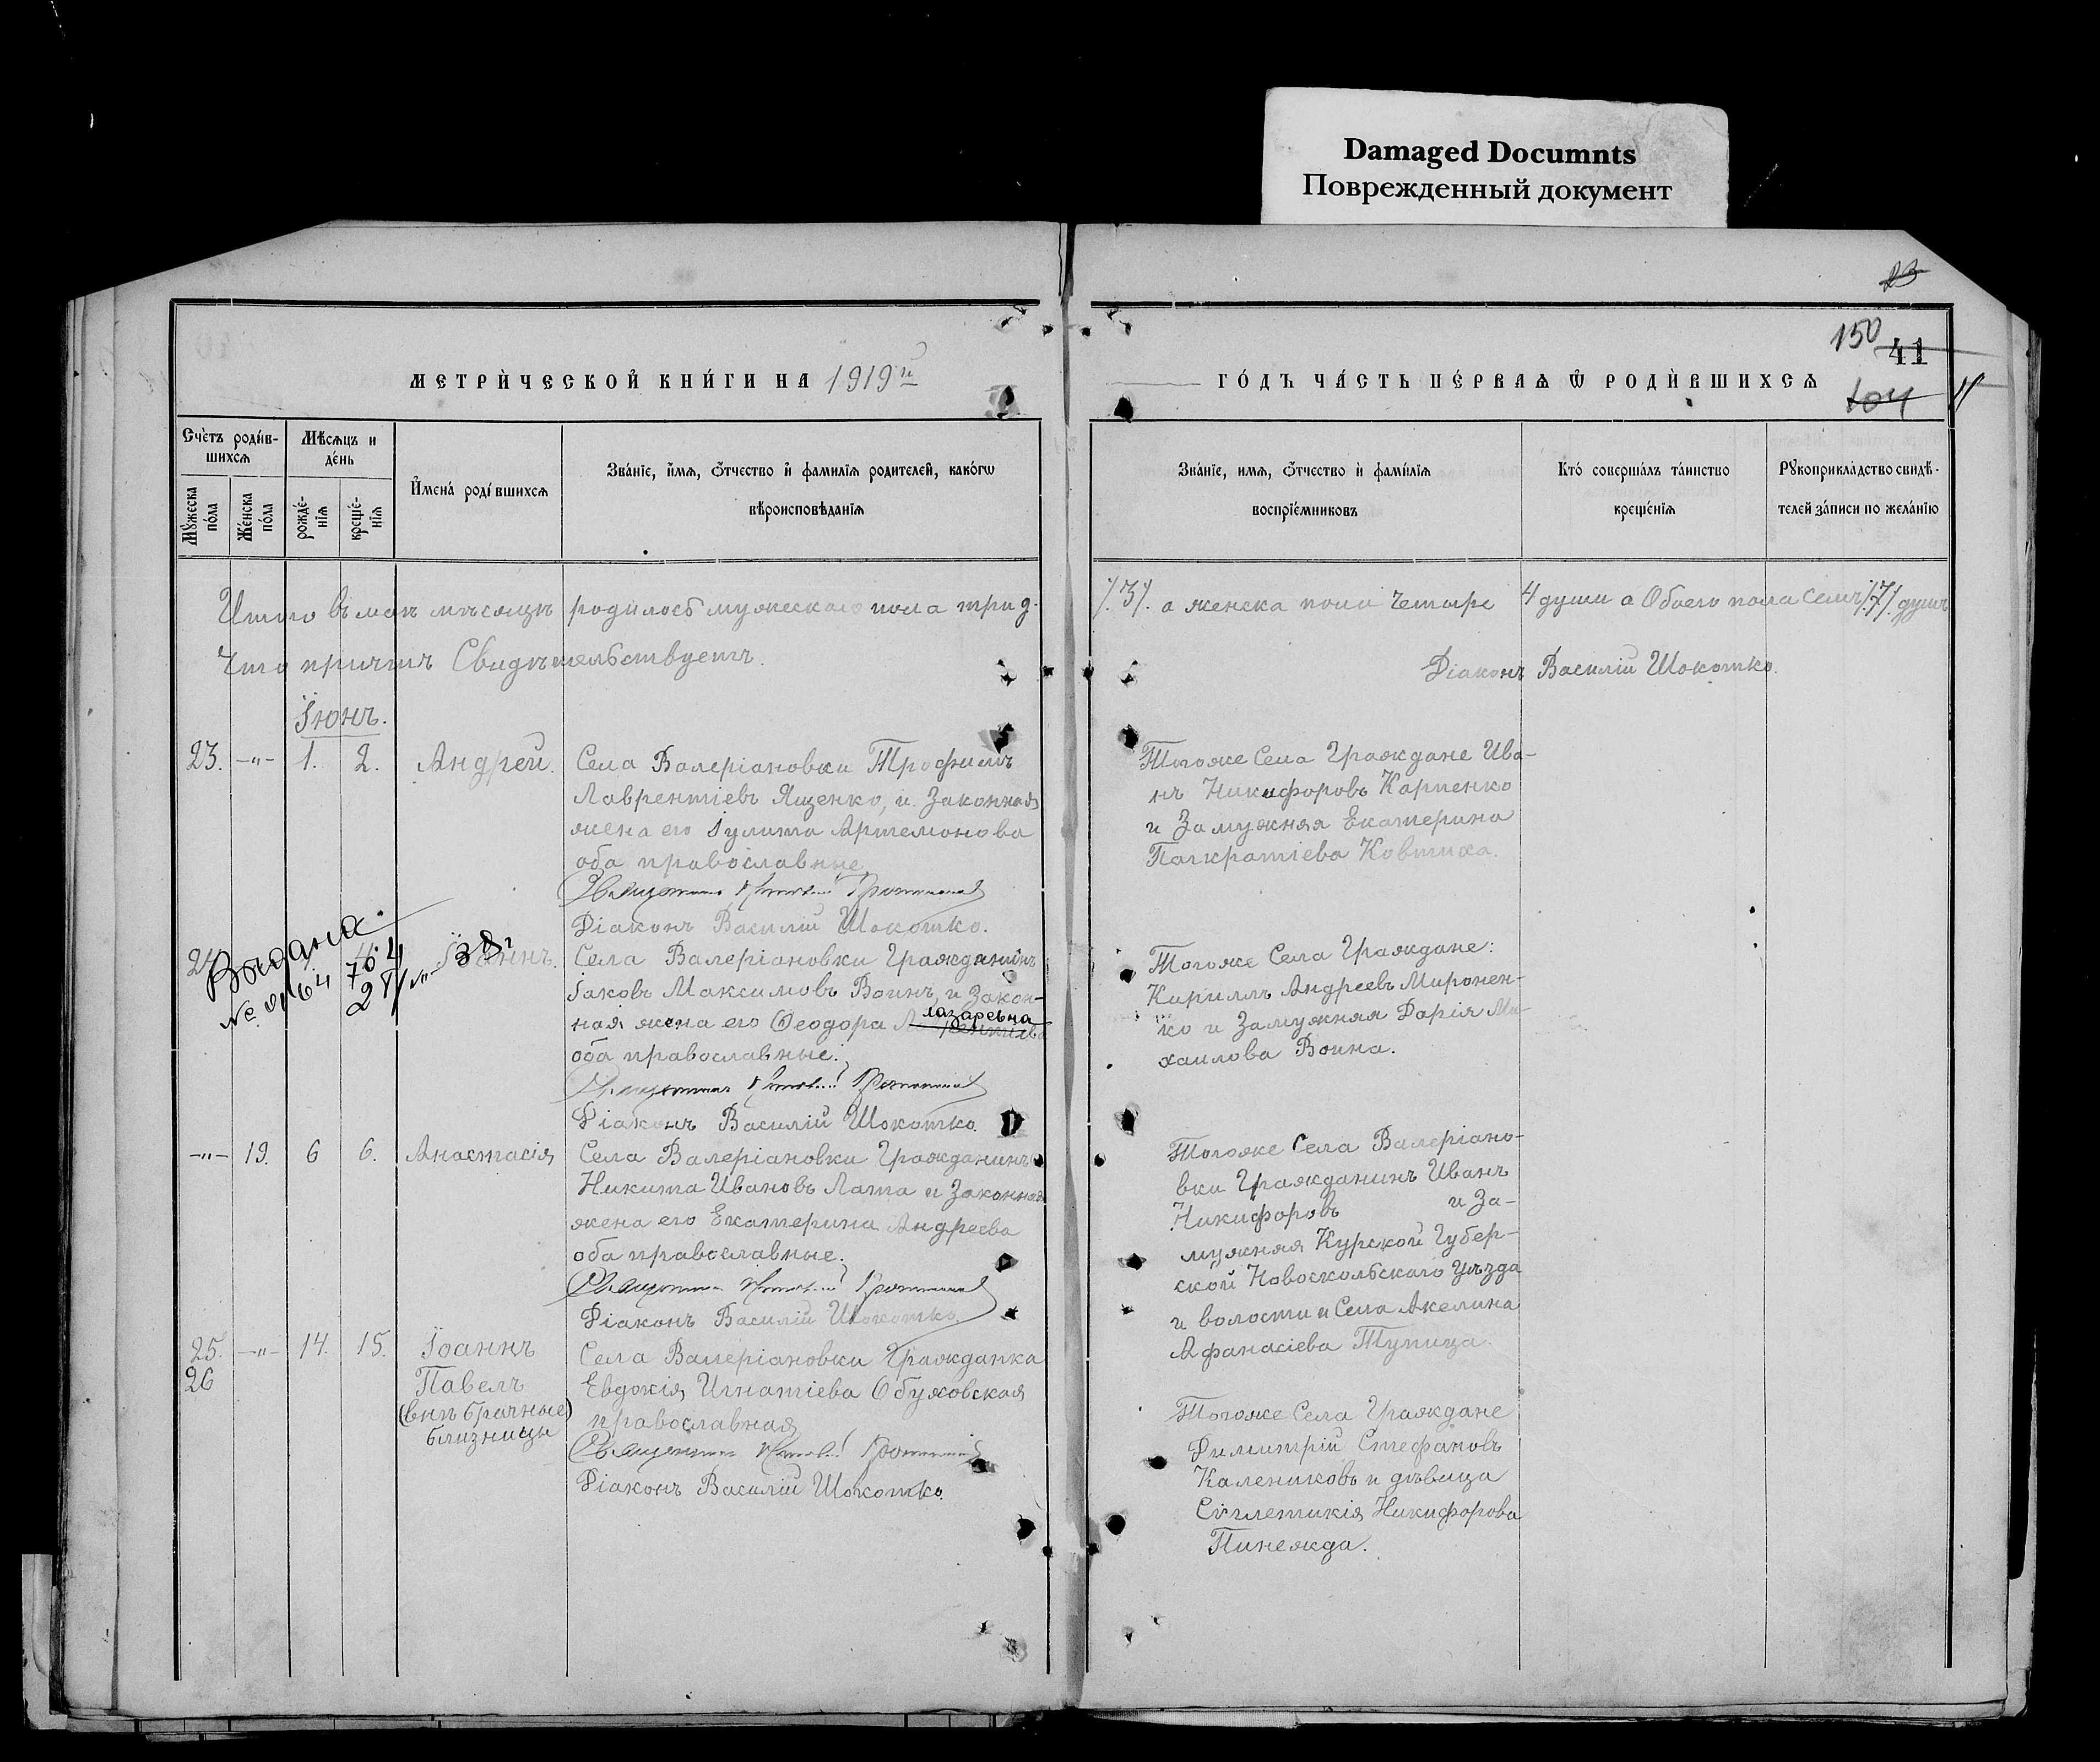 Damaged Documnts
Поврежденный документ
23
150
41
104
МЕТРИ́ЧЕСКОЙ КНИ́ГИ НА 1919й
ГО́ДЪ ЧА́СТЬ ПЕ́РВАѦ Ѿ РОДИ́ВШИХСѦ
Сче́тъ роди́в-
шихсѧ
Мѣсѧцъ и
де́нь
Мꙋжеска по́ла
Же́нска по́ла
рожде́-нїѧ
креще́-нїѧ
И́мена́ роди́вшихсѧ
Зва́нїе, и́мѧ, ѻ́тчество и҆ фамилїѧ родителей, како́гѡ
вѣроисповѣданїѧ
Зва́нїе, имѧ, ѻ́тчество и҆ фами́лїѧ
воспрїе́мниковъ
Кто́ соверша́лъ та́инство
креще́нїѧ
Рꙋкоприкла́дство свидѣ-
телей за́писи по жела́нїю
Итого въ маѣ мѣсяцѣ родилось мужескаго пола три д.
/.3/. а женска пола четыре 4 души а Обоего пола семь /.7/. душъ
Что причтъ Свидѣтельствуетъ.
Діаконъ Василій Шокотко.
Іюнь.
23. —„— 1. 2. Андрей.
Села Валеріановки Трофимъ
Лаврентіевъ Ященко, и Законная
жена его Іулита Артемонова
оба православные
Священникъ
Діаконъ Василій Шокотко.
Тогоже Села Граждане Ива-
нъ Никифоровъ Карпенко
и Замужняя Екатерина
Панкратіева Ковтиха.
Выдана
№
24 Іоаннъ.
Села Валеріановки Гражданинъ
Іаковъ Максимовъ Воинъ, и Закон-
ная жена его Ѳеодора Лазаревна
оба православные.
Священникъ
Діаконъ Василій Шокотко.
Тогоже Села Граждане:
Кириллъ Андреевъ Миронен-
ко и Замужняя Дарія Ми-
хаилова Воина.
—„— 19. 6 6. Анастасія
Села Валеріановки Гражданинъ
Никита Ивановъ Лата и Законная
жена его Екатерина Андреева
оба православные.
Священникъ
Діаконъ Василій Шокотко.
Тогоже Села Валеріано-
вки Гражданинъ Иванъ
Никифоровъ и За-
мужняя Курской Губер-
ской Новоскольскаго уѣзда
и волости и Села Акелина
Афанасіева Тупица.
25. —„— 14. 15. Іоаннъ
26 Павелъ
(внѣбрачные)
близнецы
Села Валеріановки Гражданка
Евдокія Игнатіева Обуховская
православная
Священникъ
Діаконъ Василій Шокотко.
Тогоже Села Граждане
Димитрій Стефановъ
Калениковъ и дѣвица
Сѵглетикія Никифорова
Пинежда.